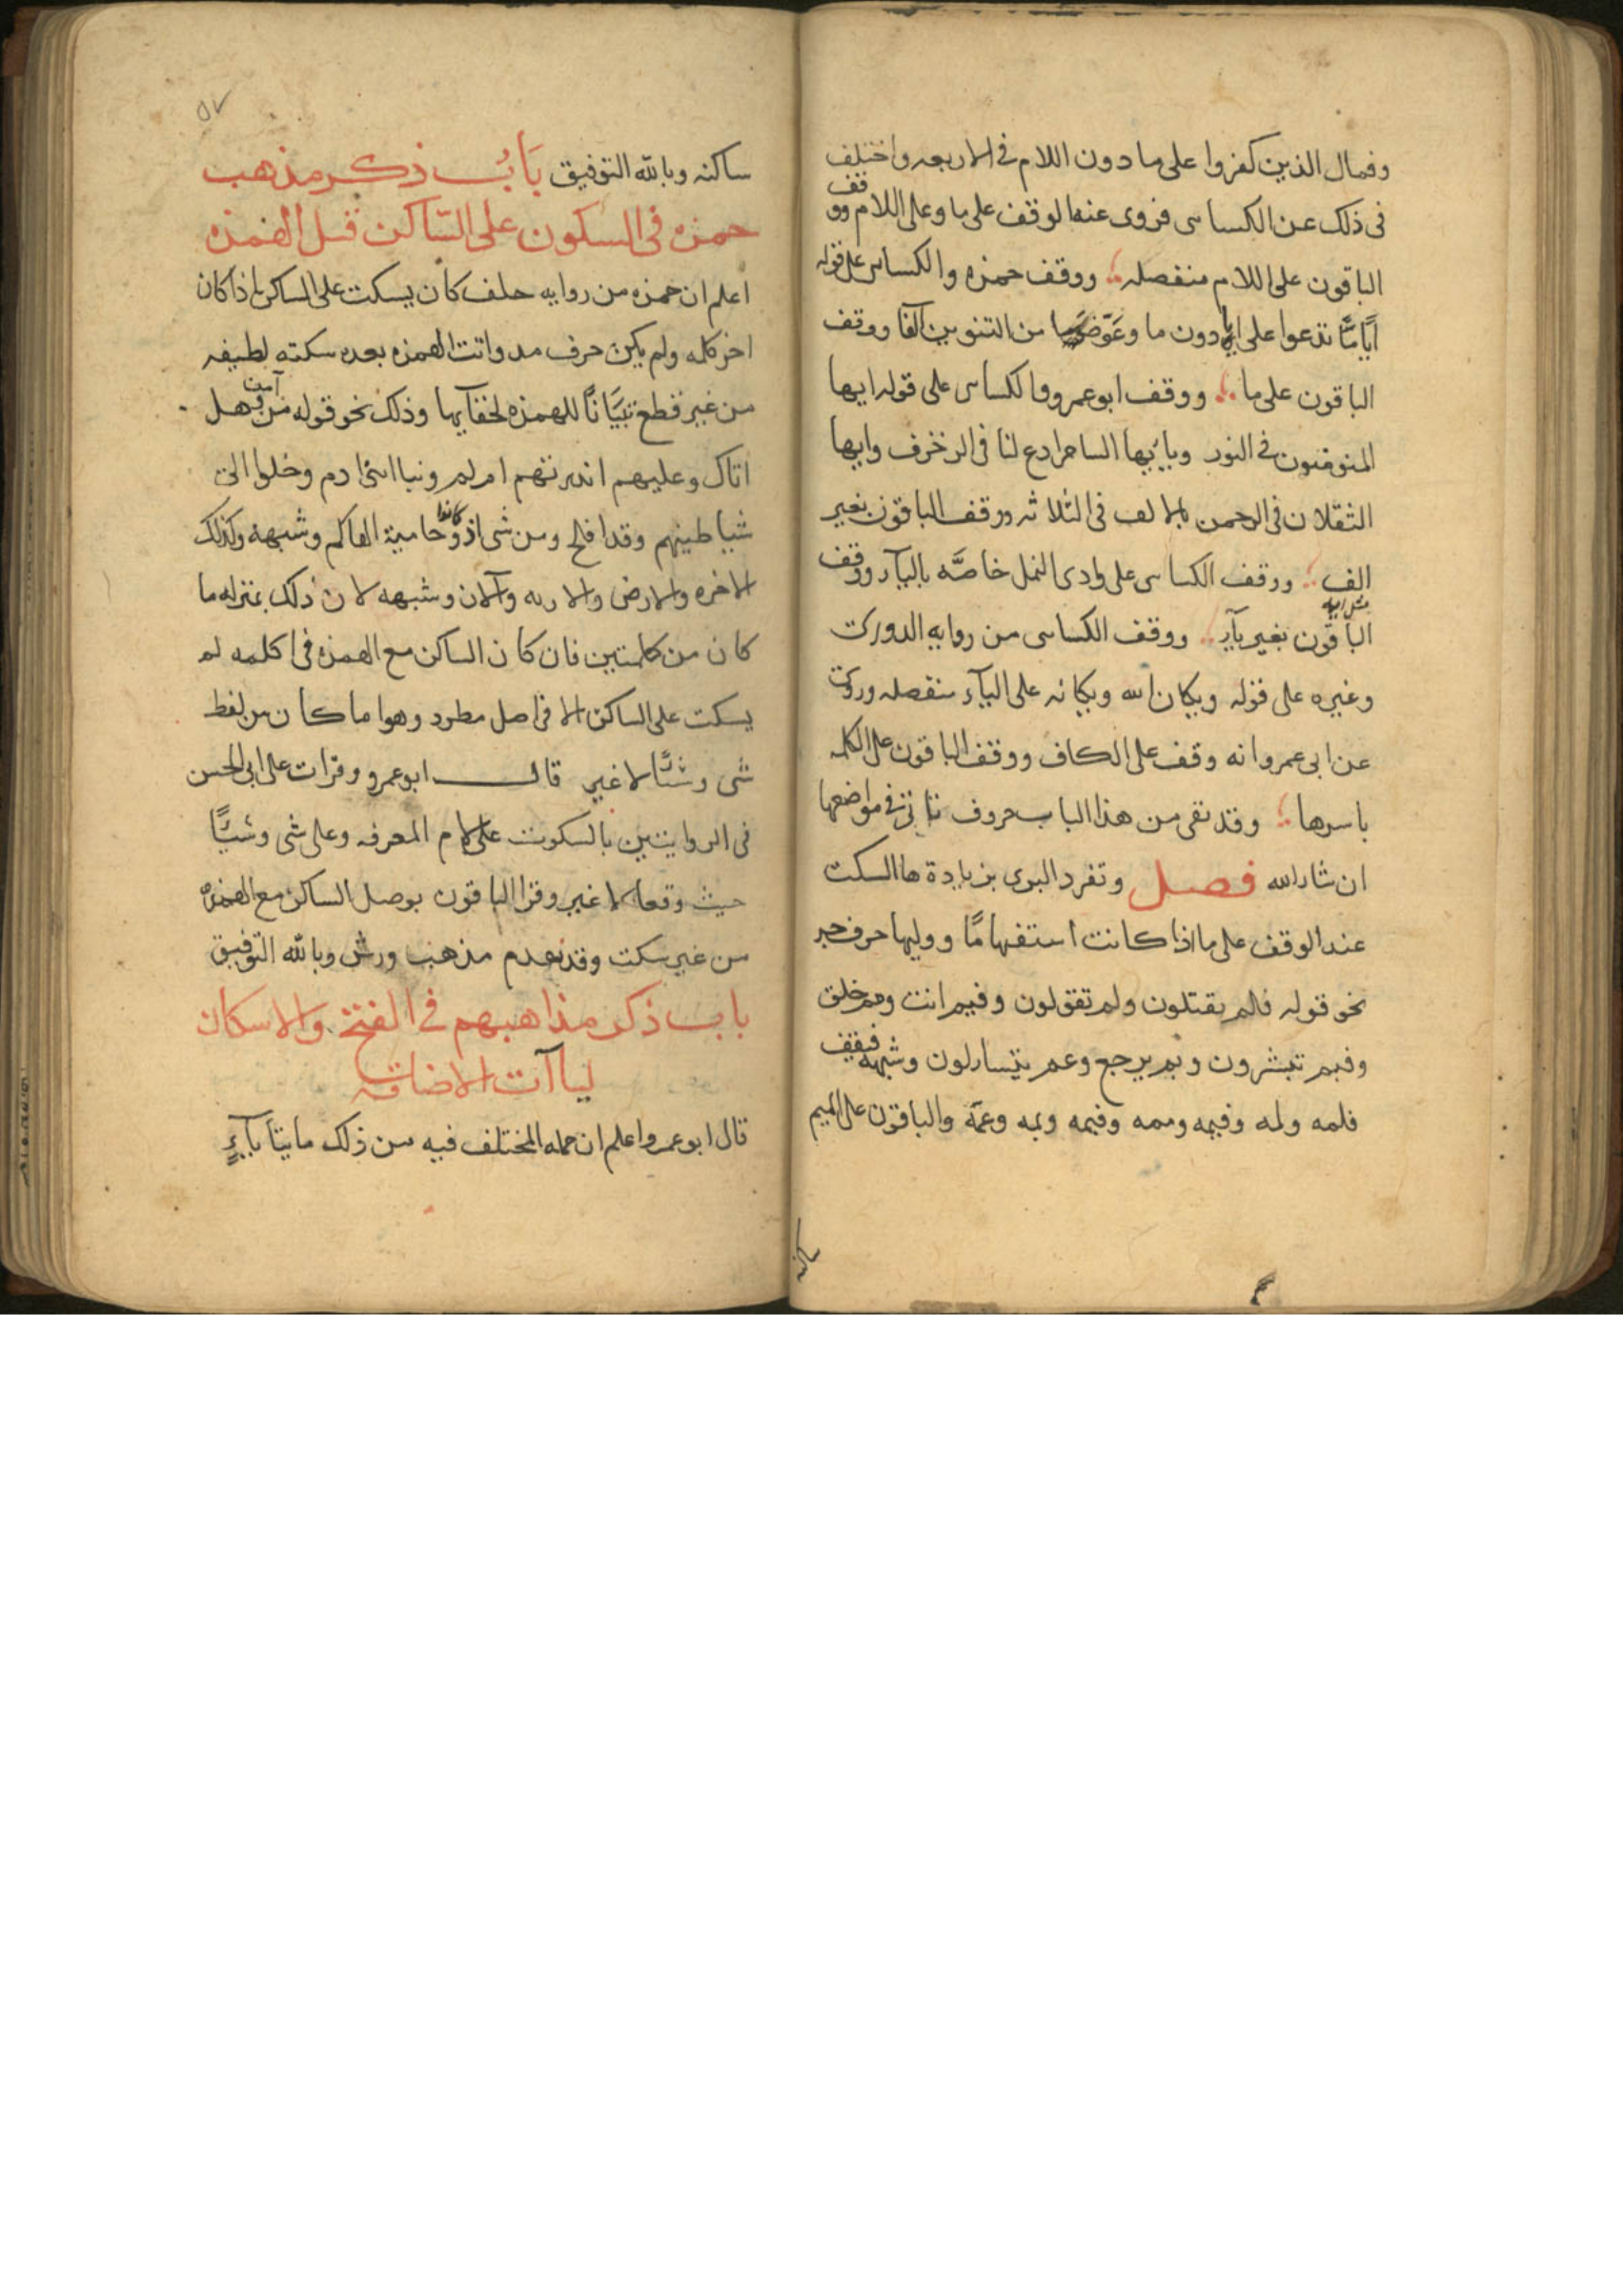 وفمال الذين كفروا على ما دون اللام فى الاربعه واختلف
فى ذلك عن الكساى فروى عنه الوقف على ما وعلى اللام ووقف
الباقون على اللام منفصله ووقف حمزه والكساى على قوله
ايًّا مّا تدعوا على ايا دون ما وعوّضا من التنوين الفا ووقف
الباقون على ما ووقف ابو عمرو والكساى على قوله ايها
المومنون فى النور ويايها الساحر ادع لنا فى الزخرف وايها
الثقلان فى الرحمن بالالف فى الثلاثه ووقف الباقون بغير
الف ووقف الكساى على وادى النمل خاصّه بالياء ووقف
الباقون بغير ياء ووقف الكساى من روايه الدورى
وغيره على قوله ويكان الله ويكانه على الياء منفصله وروى
عن ابى عمرو انه وقف على الكاف ووقف الباقون على الكلمه
باسرها وقد بقى من هذا الباب حروف تاتى فى مواضعها
ان شاء الله فصل وتفرد البزى بزيادة ها السكت
عند الوقف على ما اذا كانت استفهامًا ووليها حرف جر
نحو قوله فلم يقتلون ولم تقولون وفيم انت ومم خلق
وفبم تبشرون وبم يرجع وعم يتساءلون وشبهه فيقف
فلمه ولمه وفيمه وممه وفبمه وبمه وعمّه والباقون على الميم
ساكنه
٥٧
ساكنه وبالله التوفيق بَابُ ذكر مذهب
حمزه فى السكون على الساكن قبل الهمزه
اعلم ان حمزه من روايه خلف كان يسكت على الساكن اذا كان
اخر كلمه ولم يكن حرف مد واتت الهمزه بعده سكته لطيفه
من غير قطع تبيَانًا للهمزه لخفايها وذلك نحو قوله من آمن وهل
اتاك وعليهم انذرتهم ام لم ونبا ابنى ادم وخلوا الى
شياطينهم وقد افلح ومن شى اذ كانوا وحامية الهاكم وشبهه وكذلك
الاخره والارض والازفه والآن وشبهه لان ذلك بمنزله ما
كان من كلمتين فان كان الساكن مع الهمزه فى كلمه لم
يسكت على الساكن الا فى اصل مطرد وهو ما كان من لفظ
شى وشئًا لا غير قال ابو عمرو وقرات على ابى الحسن
فى الروايتين بالسكوت على لام المعرفه وعلى شى وشيًّا
حيث وقعا لا غير وقرا الباقون بوصل الساكن مع الهمزه
من غير سكت وقد تقدم مذهب ورش وبالله التوفيق
باب ذكر مذاهبهم فى الفتح والاسكان
لياآت الاضافه
قال ابو عمرو اعلم ان جمله المختلف فيه من ذلك مايتا ياءٍ